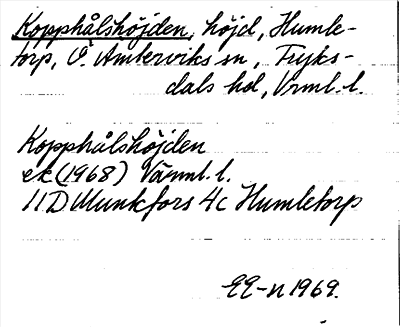 Kopphålshöjden, höjd, Humle-
torp, Ö. Ämterviks sn, Fryks-
dals hd, Vrml. l.
Kopphålshöjden
ek (1968) Värml. l.
11D Munkfors 4c Humletorp
EE-n 1969.